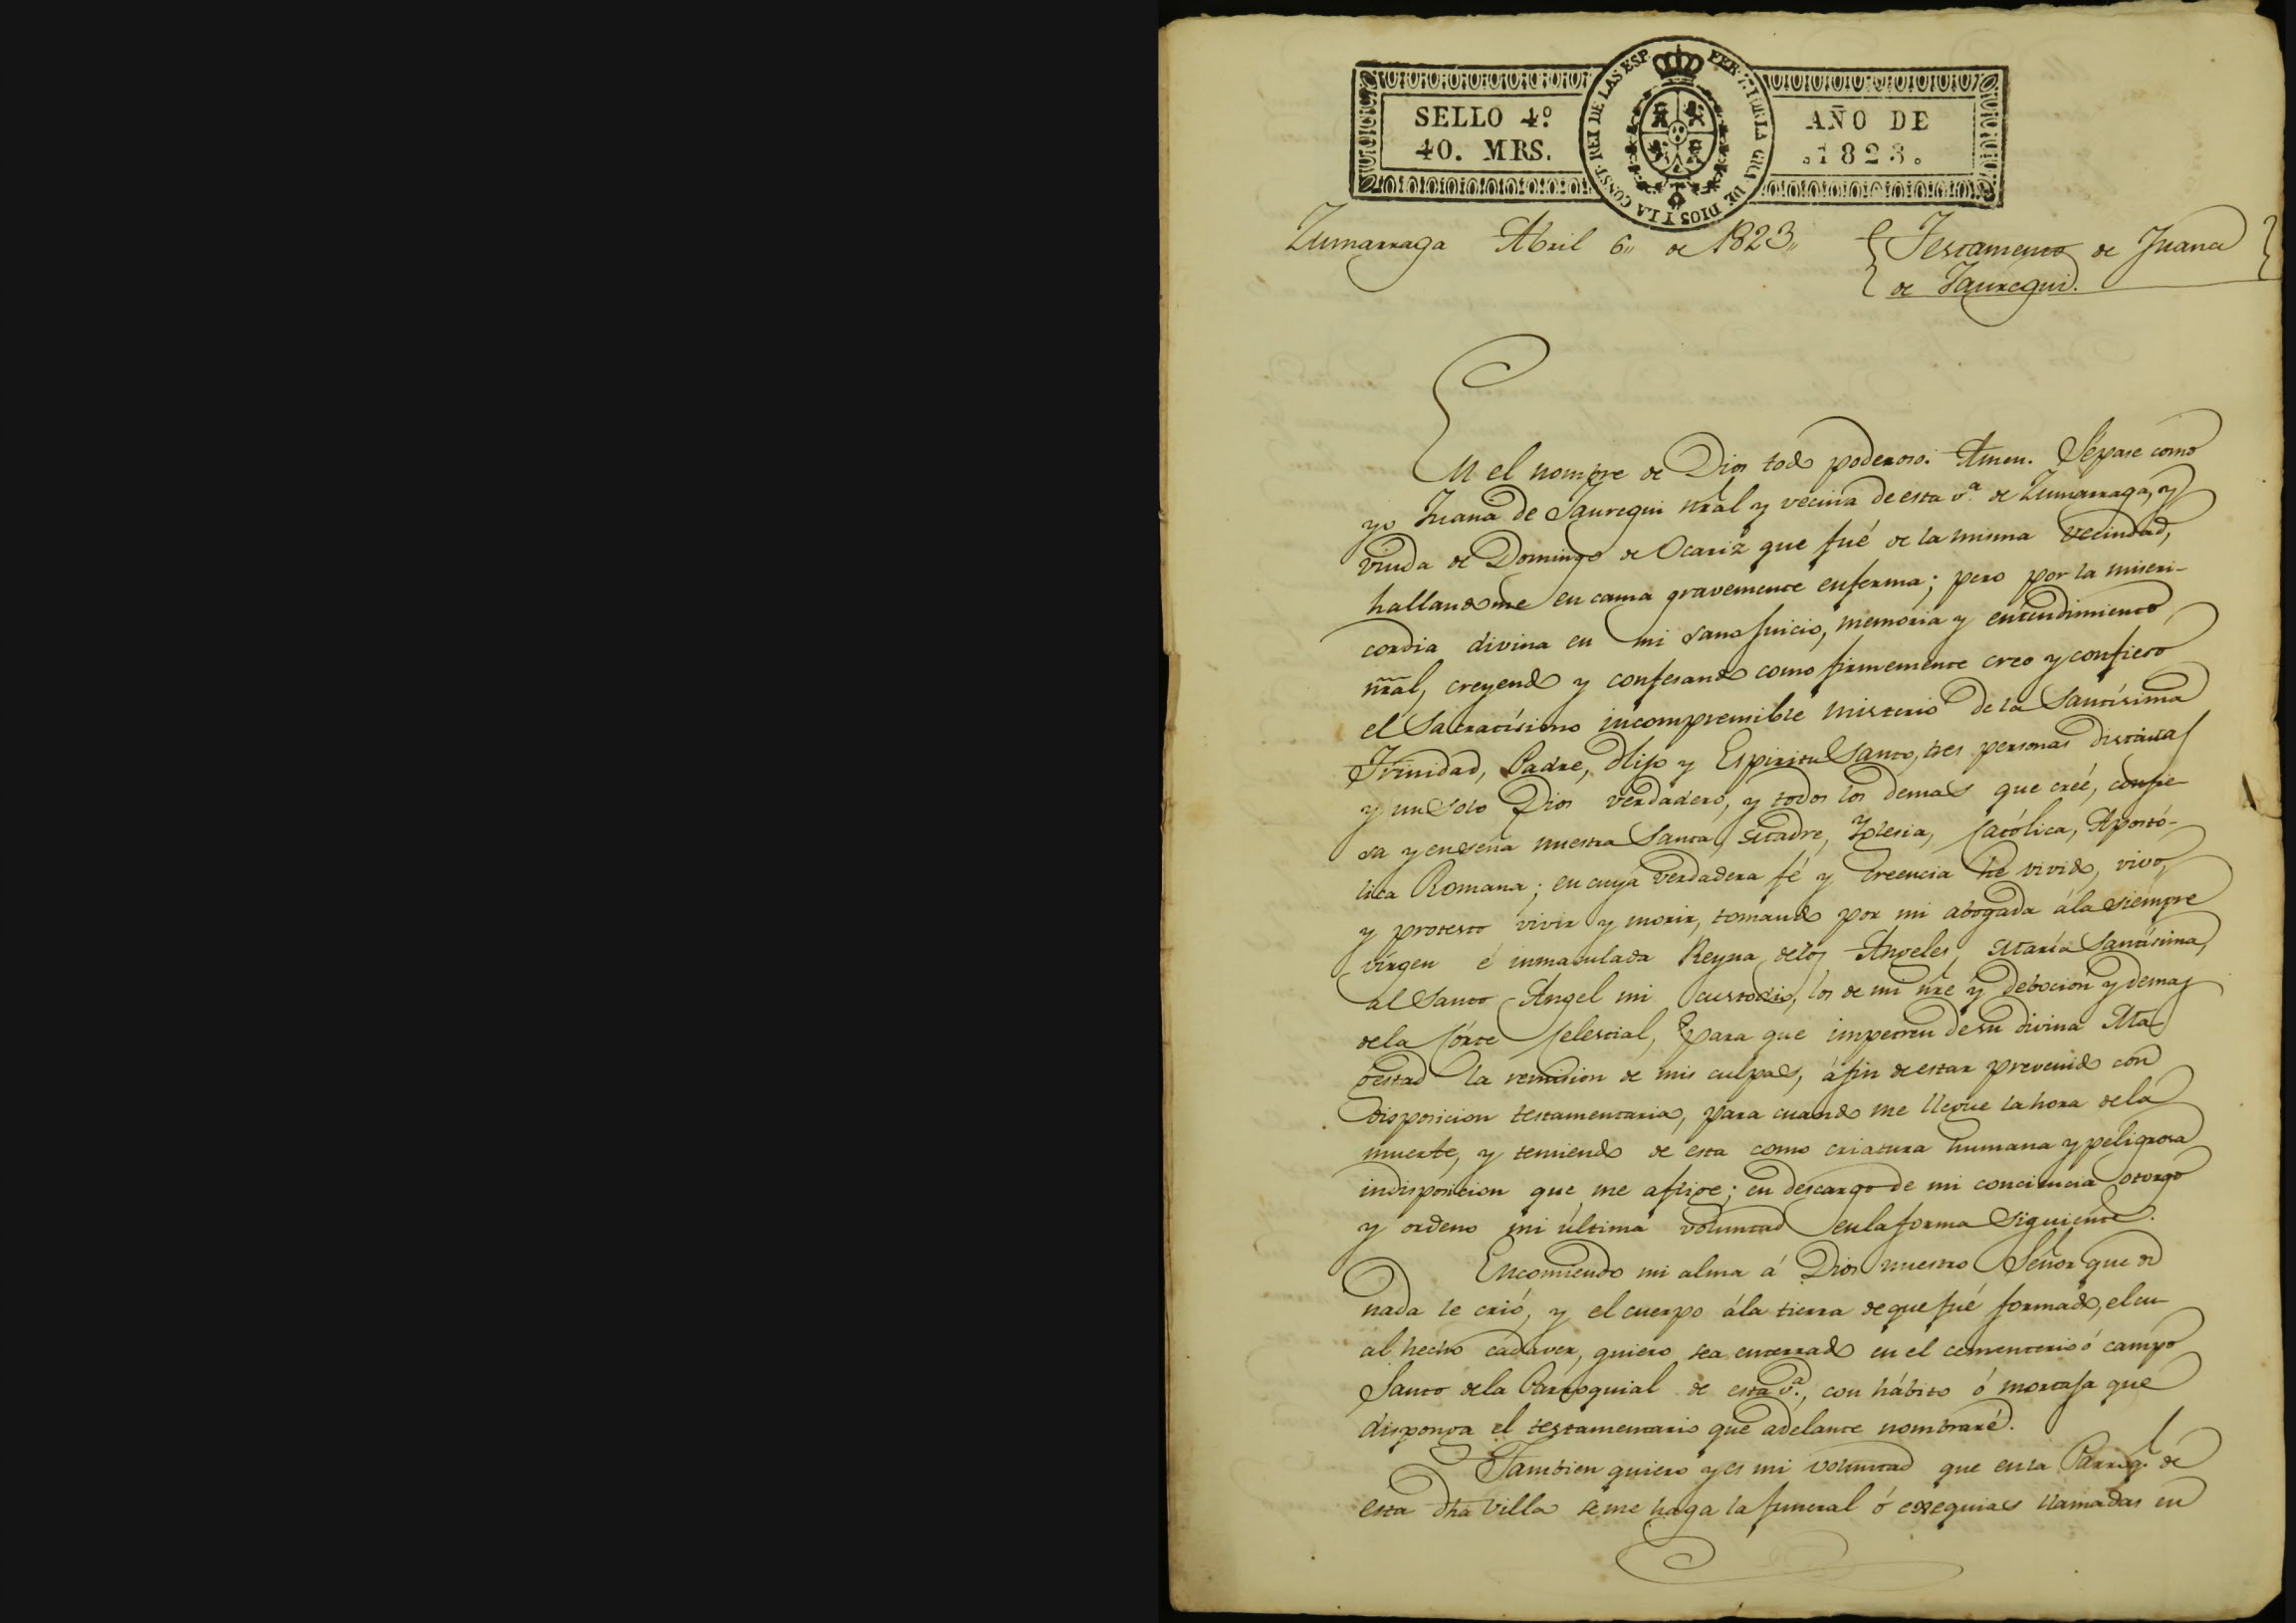 SELLO 4º
40. MRS.
FER. 7.º POR LA GRA. DE DIOS Y LA CONST. REI DE LAS ESP.
AÑO DE
1823.
Zumarraga Abril 6,, de 1823,,
Testamento de Juana
de Jauregui.
En el nombre de Dios todo poderoso. Amen. Sépase como
yo Juana de Jauregui nral y vecina de esta v.ª de Zumarraga, y
viuda de Domingo de Ocariz que fué de la misma vecindad,
hallandome en cama gravemente enferma; pero por la miseri-
cordia divina en mi sano juicio, memoria y entendimiento
nral, creyendo y confesando como firmemente creo y confieso
el Sacratísimo incompremsible misterio de la Santísima
Trinidad, Padre, Hijo y Espiritu Santo, tres personas distintas
y un solo Dios verdadero, y todos los demas que creé, confie-
sa y enseña nuestra Santa, Madre, Yglesia, Católica, Apostó-
lica Romana; en cuya verdadera fé y creencia he vivido, vivo,
y protesto vivir y morir, tomando por mi abogada ála siempre
vírgen é inmaculada Reyna delos Angeles, María Santísima,
al Santo Angel mi custodio, los de mi nre y debocion y demas
dela Córte Celestial, para que impetren de su divina Ma
gestad la remision de mis culpas, áfin de estar prevenido con
disposicion testamentaria, para cuando me llegue la hora dela
muerte, y temiendo de esta como criatura humana y peligrosa
indisposicion que me aflige; en descargo de mi conciencia otorgo
y ordeno mi última voluntad en la forma siguiente.
Encomiendo mi alma á Dios nuestro Señor que de
nada le crió, y el cuerpo ála tierra de que fué formado, el cu-
al hecho cadaver, quiero sea enterrado en el cementerio ó campo
Santo dela Parroquial de esta v.ª, con hábito ó mortaja que
disponga el testamentario que adelante nombraré.
Tambien quiero y es mi voluntad que en la Parroq.l de
esta dha Villa se me haga la funeral ó exsequias llamadas en